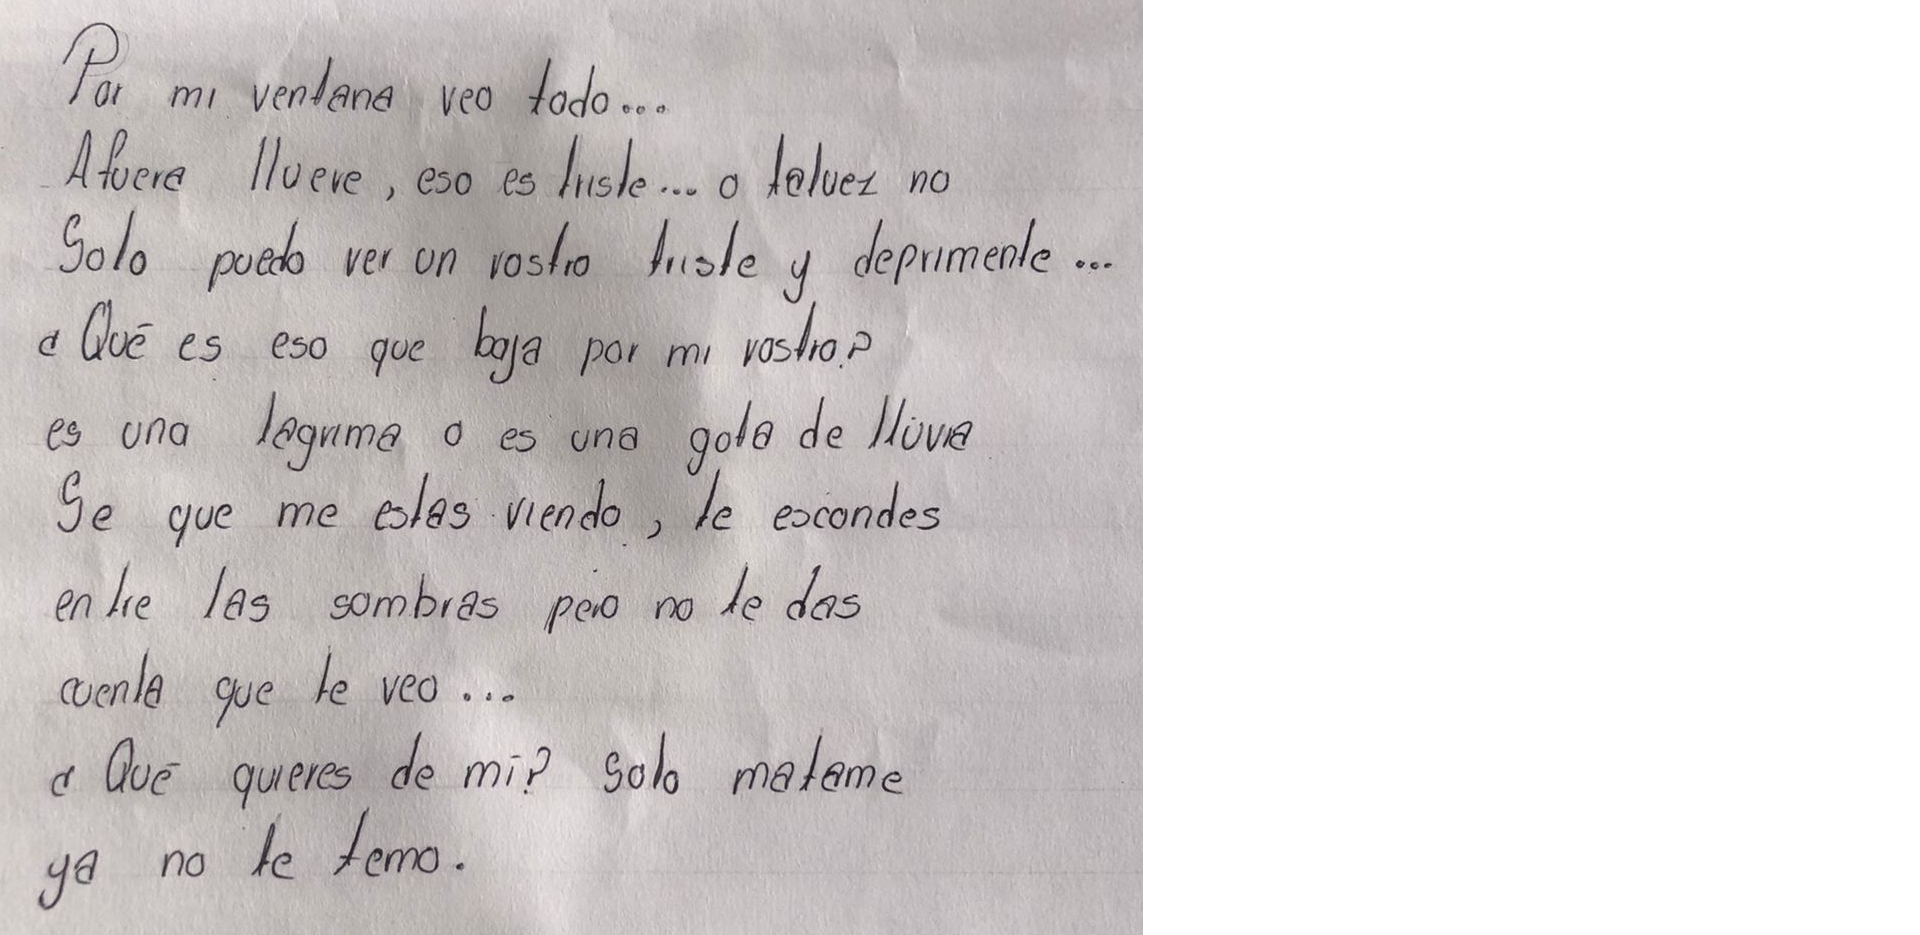 Por mi ventana veo todo...
Afuera llueve, eso es triste... o talvez no
Solo puedo ver un rostro triste y deprimente...
¿Qué es eso que baja por mi rostro?
es una lagrima o es una gota de lluvia
Se que me estas viendo, te escondes
entre las sombras pero no te das
cuenta que te veo...
¿Qué quieres de mí? Solo matame
ya no te temo.